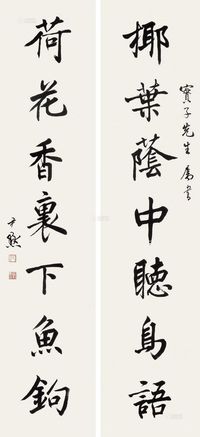 寳子先生属書
椰葉蔭中聽鳥語
荷花香裏下魚鉤
尹默